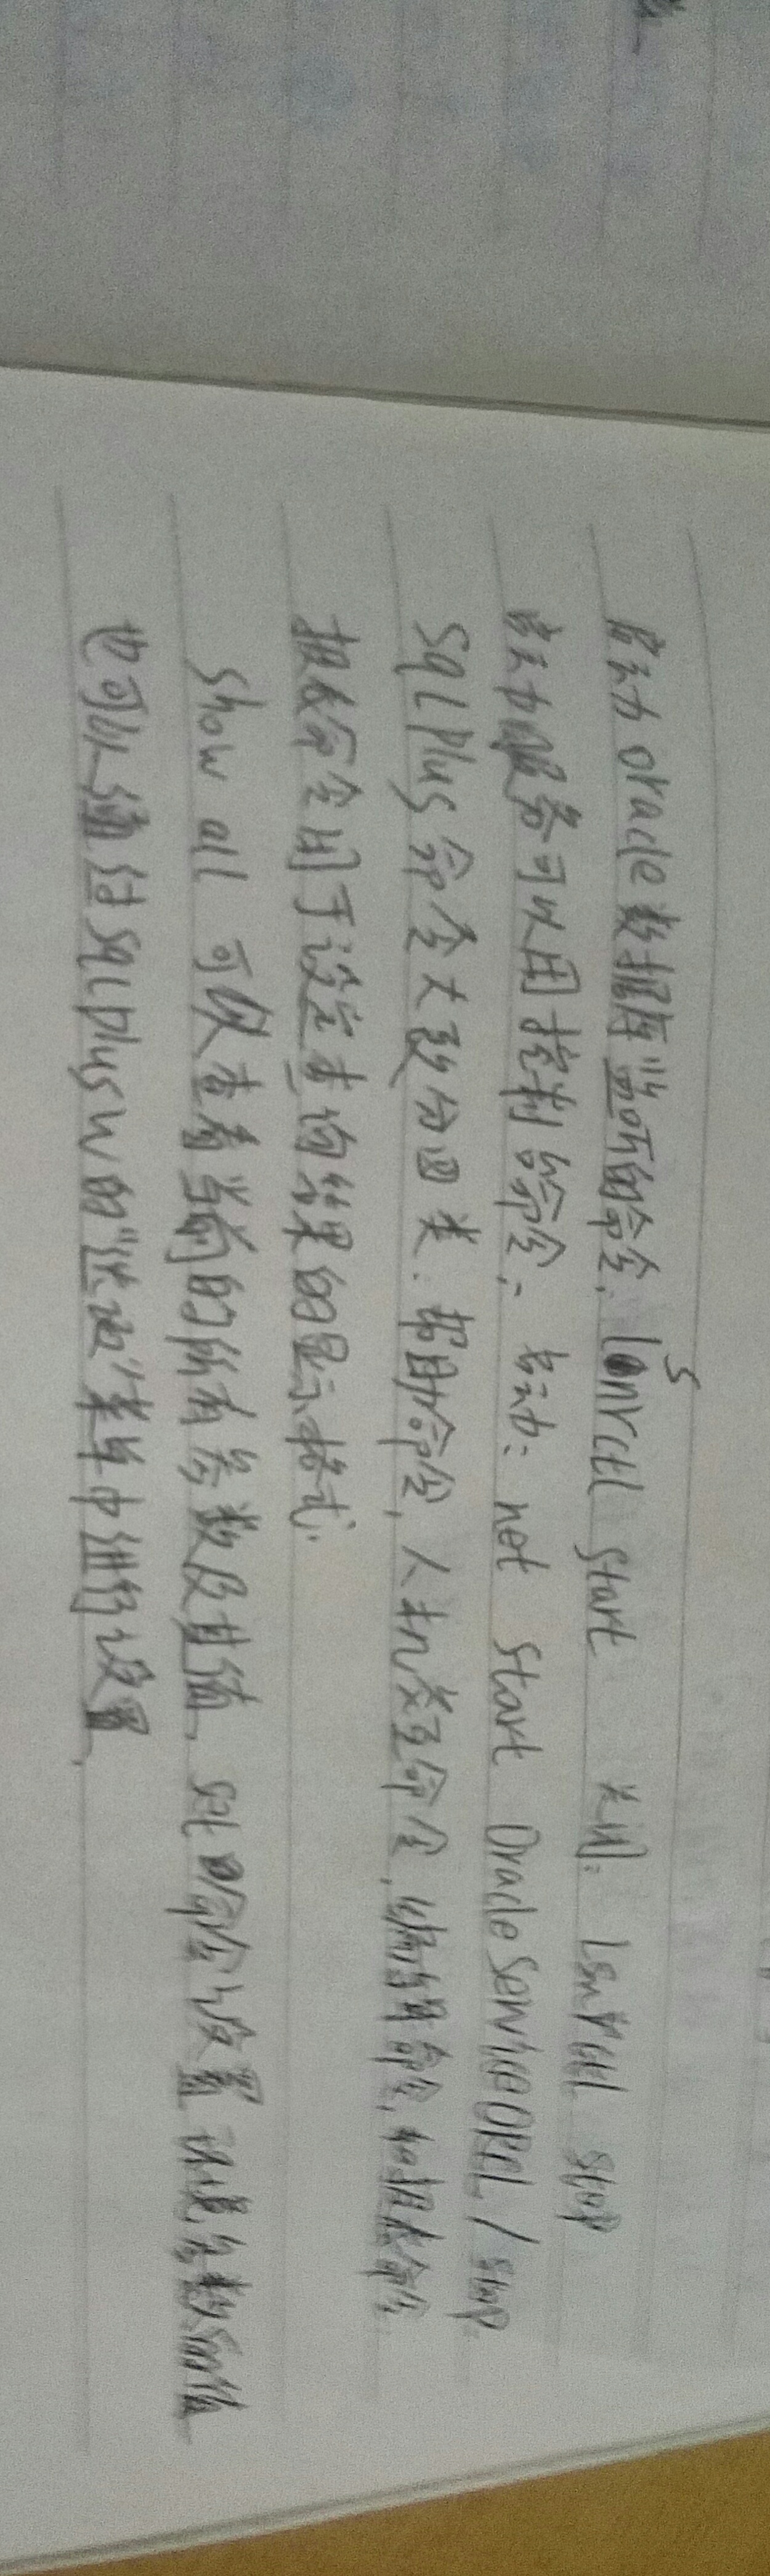 启动oracle数据库监听的命令. lsnrctl start 关闭: lsnrctl stop
启动服务可以用控制台命令; 启动: net start OracleServiceORCL / stop
SqlPlus命令大致分四类. 帮助命令, 人机交互命令, 编辑命令, 和报表命令
报表命令用于设定查询结果的显示格式.
show all 可以查看当前的所有参数及其值, set命令设置环境参数的值
也可以通过SqlPlusW的"选项"菜单中进行设置,